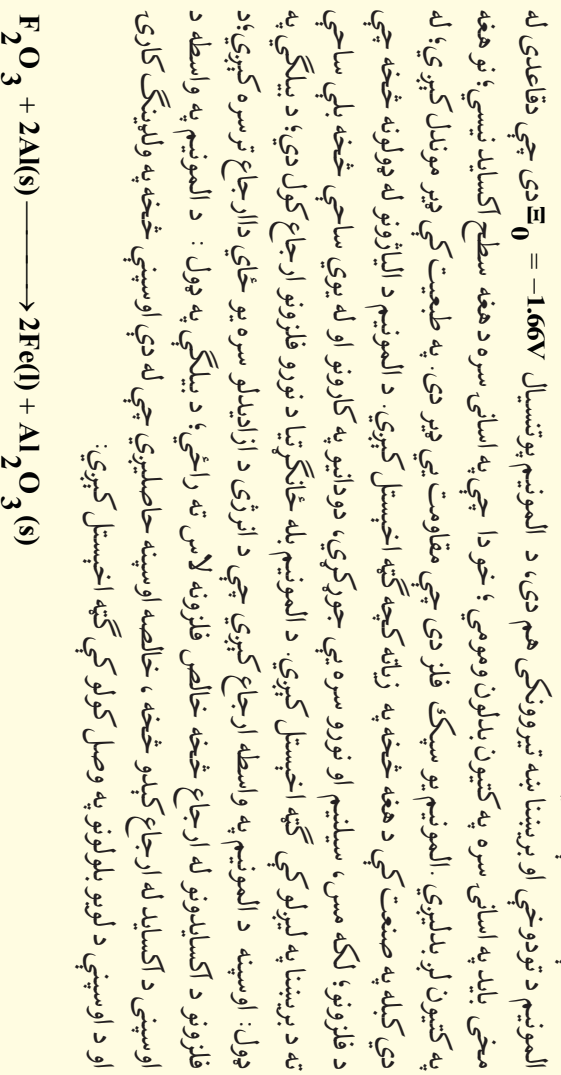 المونیم د تودوخې او بریښنا ښه تیروونکی هم دی، د المونیم پوتنسیال Ξ0 = −1.66V دی چې دقاعدې له
مخې باید په اسانۍ سره په کتیون بدلون ومومي؛ خو دا چې په اسانۍ سره د هغه سطح اکساید نیسي؛ نو هغه
په کتیون لږ بدلیږي .المونیم یو سپک فلز دی چې مقاومت یې ډیر دی. په طبعیت کې ډیر موندل کیږي؛ له
دې کبله په صنعت کې د هغه څخه په زیاته کچه ګټه اخیستل کیږي. د المونیم د الیاژونو له ډولونه څخه چې
د فلزونو؛ لکه مس، سیلنیم او نورو سره یې جوړکړي، دودانیو په کارونو او له یوې ساحې څخه بلې ساحې
ته د بریښنا په لیږلو کې ګټه اخیستل کیږي. د المونیم بله ځانګړتیا د نورو فلزونو ارجاع کول دي؛ د بیلګې په
ډول: اوسپنه د المونیم په واسطه ارجاع کیږي چې د انرژۍ د ازادیدلو سره یو ځای داارجاع ترسره کیږي؛د
فلزونو د اکسایدونو له ارجاع څخه خالص فلزونه لاس ته راځي؛ د بیلګې په ډول : د المونیم په واسطه د
اوسپنې د اکساید له ارجاع کیدو څخه ، خالصه اوسپنه حاصلیږي چې له دې اوسپنې څخه په ولډینګ کارۍ
او د اوسپنې د لویو بلولونو په وصل کولو کې ګټه اخیستل کیږي:
F2O3 + 2Al(s) ⟶ 2Fe(l) + Al2O3(s)